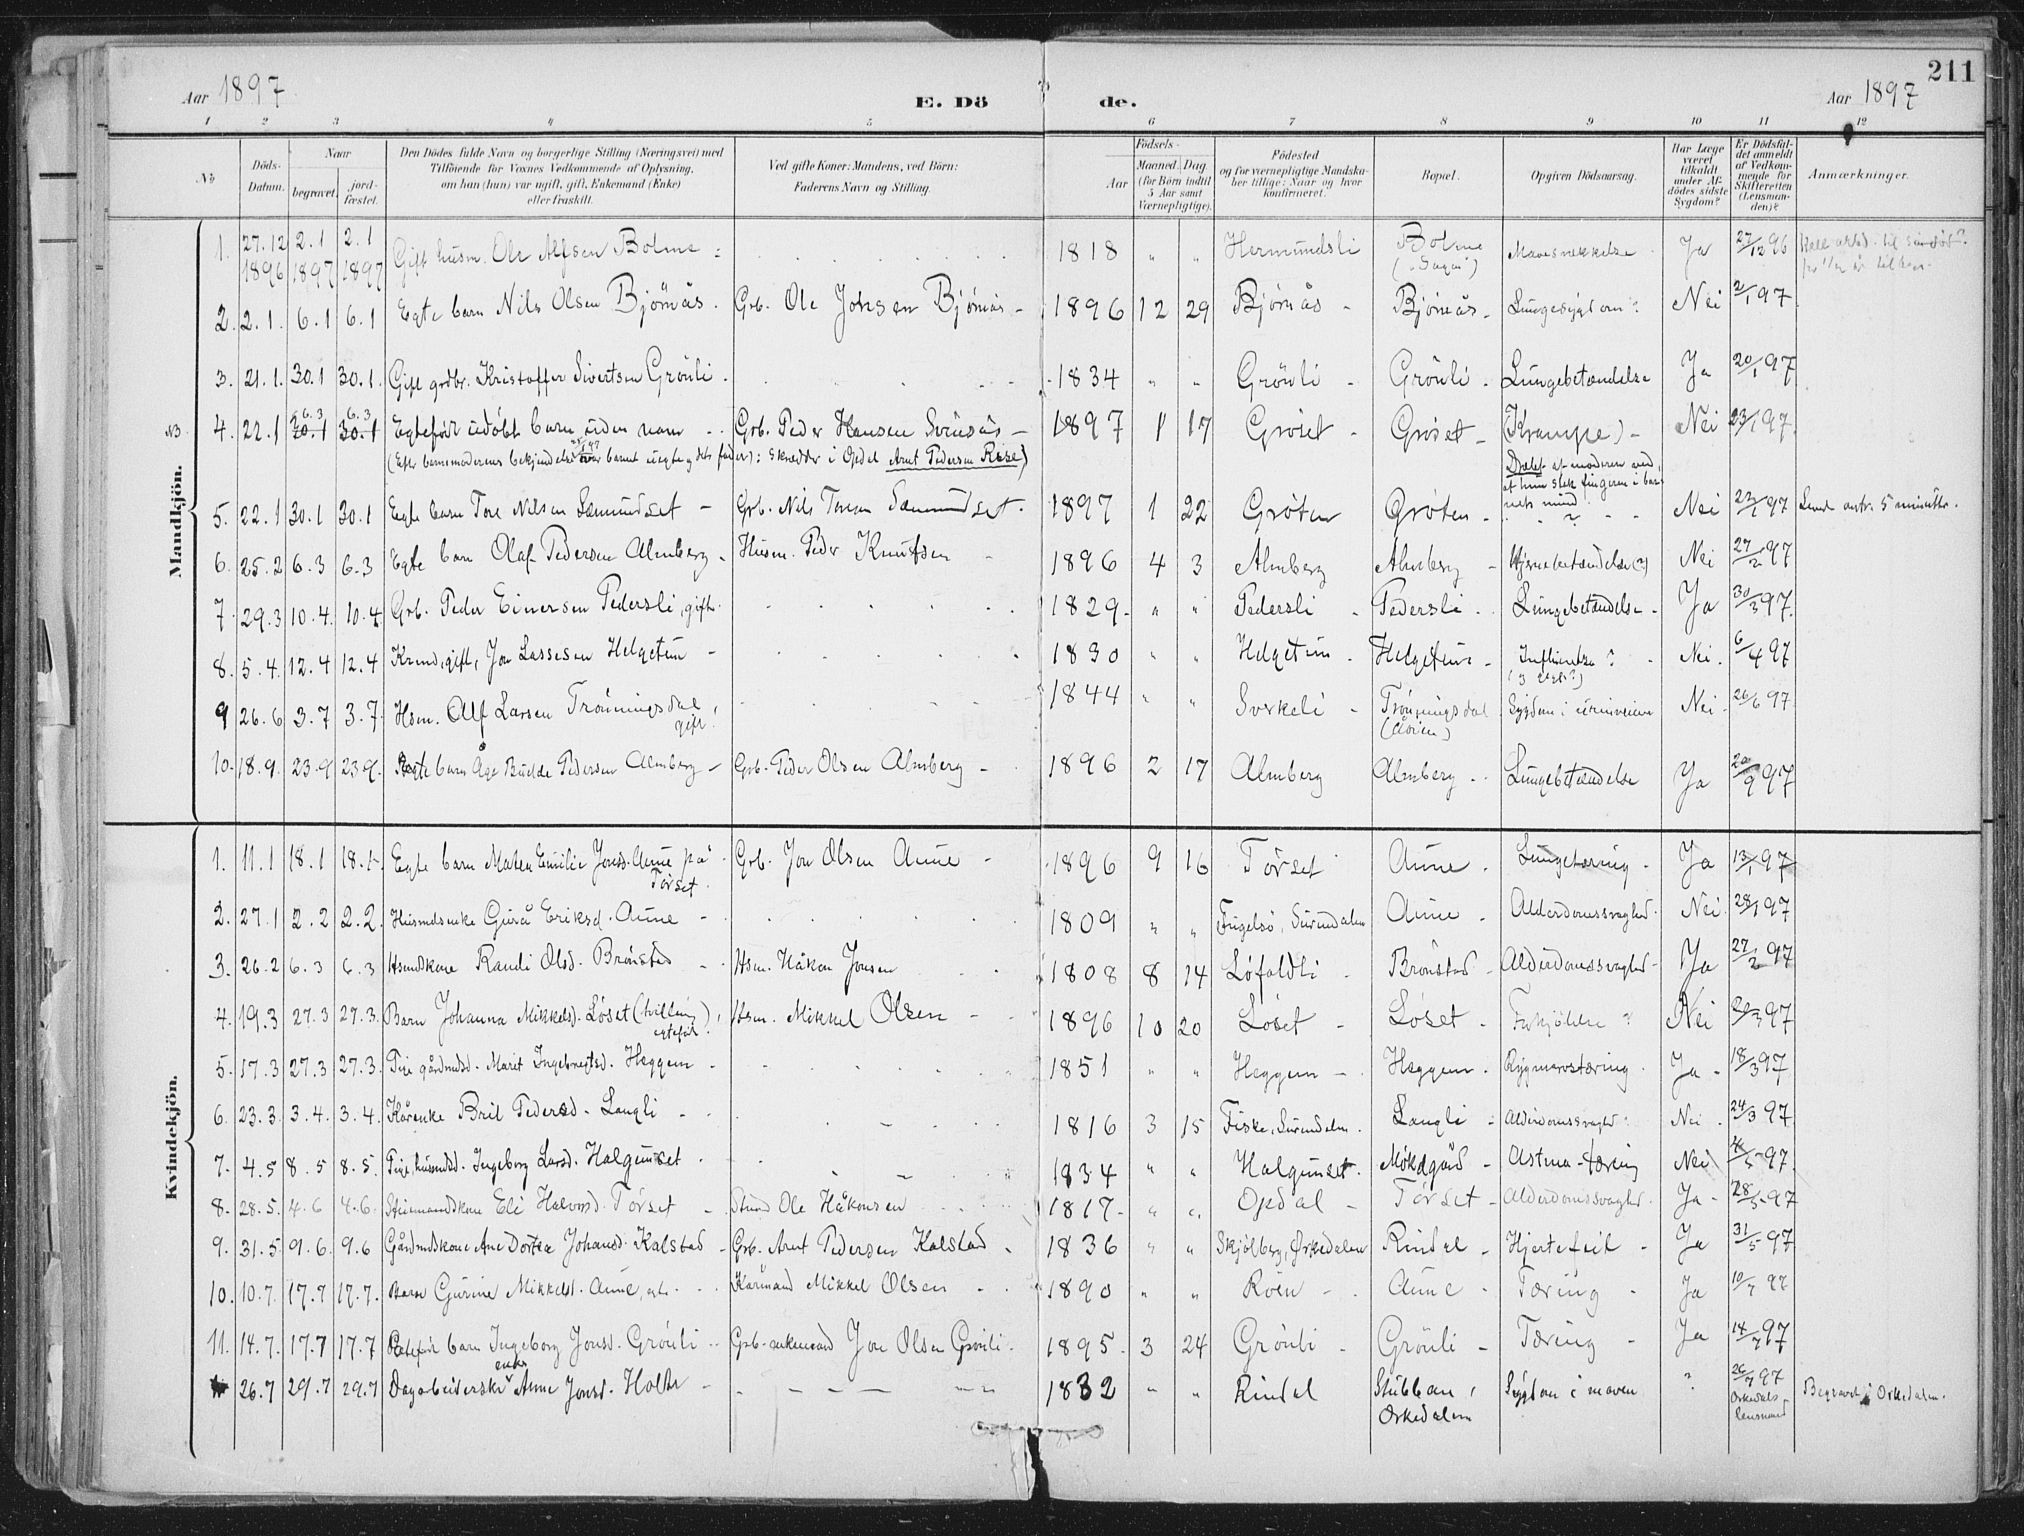 211
Aar 1897
E. Dö de.
Aar 1897
1 2 3 4 5 6 7 8 9 10 11 12
No
Döds-Datum.
Naar
begravet.
jord-fæstet.
Den Dödes fulde Navn og borgerlige Stilling (Næringsvei) med
Tilföiende for Voxnes Vedkommende af Oplysning,
om han (hun) var ugift, gift, Enkemand (Enke)
eller fraskilt.
Ved gifte Koner: Mandens, ved Börn:
Faderens Navn og Stilling.
Födsels-
Aar
Maaned. Dag
(for Börn indtil
5 Aar samt
Værnepligtige).
Födested
og for værnepligtige Mandska-
ber tillige: Naar og hvor
konfirmeret.
Bopæl.
Opgiven Dödsaarsag.
Har Læge
været
tilkaldt
under Af-
dödes sidste
Sygdom?
Er Dödsfal-
det anmeldt
af Vedkom-
mende for
Skifteretten
(Lensman-
den)?
Anmærkninger.
Mandkjön.
1. 27.12 1896 2.1 1897 2.1 1897 Gift husm. Ole Alfsen Bolme 1818 " " Hermundsli Bolme Ja 27/12 96
2. 2.1. 6.1 6.1 Egte barn Nils Olsen Bjørnås. Grb. Ole Johsen Bjørnås 1896 12 29 Bjørnås Bjørnås Lungesygdom? Nei 2/1 97
3. 21.1. 30.1 30.1. Gift grdbr. Kristoffer Sivertsen Grönli 1834 " " Grönli Grönli Lungebetændelse Ja 20/1 97
4. 22.1 6.3 30.1 6.3 30.1 Egtefødt udøbt barn uden navn Grb. Peder Hansen 1897 1 17 Grøset Grøset (Krampe) Nei 23/1 97
(Efter barnemoderens bekjendelse var barnet uegte og dets fader: skrædder i Opdal Arnt Pedersen Rise)
5. 22.1 30.1 30.1 Egte barn Tore Nilsen Sæmundset Grb. Nils Toresen Sæmundset. 1897 1 22 Grøten Grøten ? Nei 23/1 97 Levede omtr. 5 minutter.
6. 25.2 6.3 6.3 Egte barn Olaf Pedersen Almberg Husm. Peder Knutsen 1896 4 3 Almberg Almberg Hjernebetændelse (?) Nei 27/2 97
7. 29.3 10.4. 10.4 Grb. Peder Einersen Pedersli, gift. 1829 " " Pedersli Pedersli Lungebetændelse Ja 30/3 97.
8. 5.4. 12.4 12.4 gift, Jon Lassesen Helgetun 1830 " " Helgetun Helgetun Influenza? Nei. 6/4 97
9 26.6 3.7 3.7. Hsm. Alf Larsen Trönningsdal, gift. 1844 " " Sverkeli Trönningsdal Sygdom i urinveiene Nei 26/6 97.
10. 18.9. 23.9 23.9. Egte barn Åge Budde Pedersen Almberg Grb. Peder Olsen Almberg 1896 2 17 Almberg Almberg Lungebetændelse Ja 20/9 97
Kvindekjön.
1. 11.1 18.1 18.1. Egte barn Maren Emilie Jonsd. Aune på Tørset. Grb. Jon Olsen Aune 1896 9 16 Tørset Aune Lungetæring Ja 13/1 97
2. 27.1 2.2 2.2. Husmdsenke Gurå Eriksd. Aune 1809 " " Surendalen Aune Alderdomssvaghed. Nei 28/1 97
3. 26.2 6.3 6.3 Hsmdskone Randi Olsd. Brønstad Hsm. Håkon Jonsen 1808 8 14 Løfaldli Brønstad Alderdomssvaghed Ja 27/2 97
4. 19.3 27.3 27.3. Barn Johanna Mikkelsd. Løset (tvilling), egtefødt. Hsm. Mikkel Olsen 1896 10 20 Løset Løset Forkjølelse? Nei 20/3 97
5. 17.3 27.3 27.3. Pige gårdmdsd. Marit Ingebrigtsd. Heggem 1851 " " Heggem Heggem Rygmarvstæring Ja 18/3 97
6. 23.3. 3.4. 3.4. Kårenke Brit Pedersd. Langli 1816 3 15 Fiske, Surendalen. Langli Alderdomssvaghed Nei 24/3 97
7. 4.5 8.5 8.5. Pige, husmdsd. Ingeborg Larsd. Halgunset 1834 " " Halgunset Astma-tæring Nei 4/5 97.
8. 28.5. 4.6 4.6. Eli Halvorsd. Tørset Ole Håkonsen 1817 " " Opdal Tørset Alderdomssvaghed. Ja 28/5 97
9. 31.5 9.6. 9.6 Gårdmdskone Ane Dortea Johansd. Kalstad Grb. Arnt Pedersen Kalstad 1836 " " Skjølberg, Ørkedalen Rindal Hjertefeil Ja 31/5 97
10. 10.7. 17.7 17.7. Barn Gurine Mikkelsd. Aune, egte Kårmand Mikkel Olsen 1890 " " Röen Aune Tæring Ja 10/7 97
11. 14.7. 17.7 17.7 Egtefødt barn Ingeborg Jonsd. Grönli Grb. enkemand Jon Olsen Grönli. 1895 3 24 Grönli Grönli Tæring Ja 14/7 97
26.7 29.7 29.7 Dagarbeiderske enke Anne Jonsd. Holte 1832 " " Rindal Stubban, Ørkedalen Sygdom i maven ? 26/7 97 Orkedals lensmand Begravet i Orkedalen.